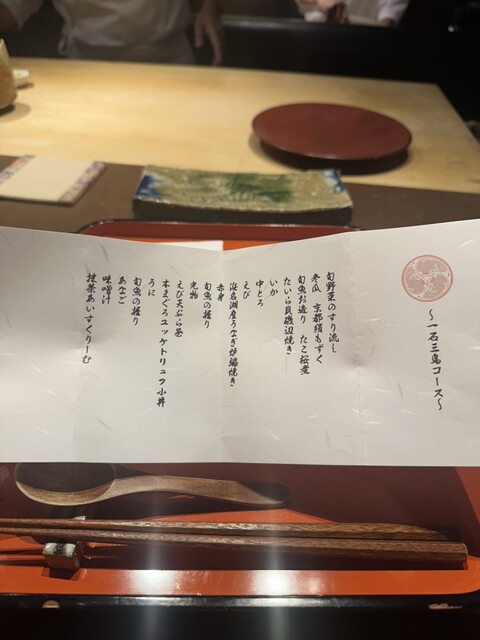 ～一石三鳥コース～
旬野菜のすり流し
冬瓜 京都絹もずく
旬魚お造り たこ桜煮
たいら貝磯辺焼き
いか
中とろ
えび
浜名湖産うなぎ炉端焼き
赤身
旬魚の握り
光物
えび天ぷら茶
本まぐろユッケトリュフ小丼
うに
旬魚の握り
あなご
味噌汁
抹茶あいすくりーむ